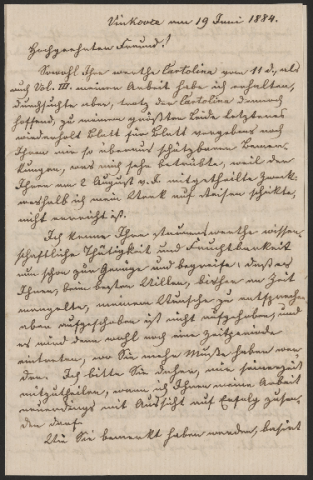 Vinkovce am 19 Juni 1884.
Hochgeehrter Freund!
Sowohl Ihre werthe Cartoline vom 11 d., als
auch Vol. III. meiner Arbeit habe ich erhalten,
durchsuchte aber, trotz der Cartoline dennoch
hoffend, zu meinem größten Leide letzteres
wiederholt Blatt für Blatt vergebens nach
Ihren mir so überaus schätzbaren Bemer-
kungen, was mich sehr betrübte, weil der
Ihnen am 2 August v. J. mitgetheilte Zweck
weshalb ich mein Werk auf Reisen schickte,
nicht erreicht ist.
Ich kenne Ihre staunenswerthe wissen-
schaftliche Thätigkeit und Fruchtbarkeit
nun schon zur Genüge und begreife, daß es
Ihnen, beim besten Willen, bisher an Zeit
mangelte, meinem Wunsche zu entsprechen
aber aufgeschoben ist nicht aufgehoben, und
es wird dann wohl noch eine Zeitperiode
eintreten, wo Sie mehr Muße haben wer-
den. Ich bitte Sie daher, mir seinerzeit
mitzutheilen, wann ich Ihnen meine Arbeit
neuerdings mit Aussicht auf Erfolg zusen-
den darf.
Wie Sie bemerkt haben werden, besitzt